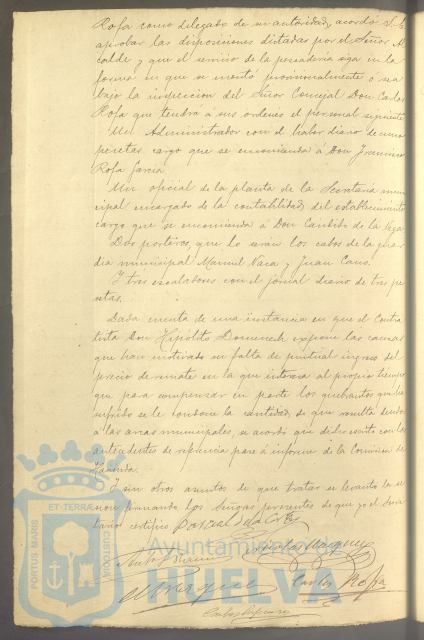 Rofa como delegado de su autoridad, acordó
aprobar las disposiciones dictadas por el Señor Al
calde y que el servicio de la pescadería siga en la
forma en que se montó provisionalmente ó sea
bajo la inspección del Señor Concejal Don Carlos
Rofa que tendrá á sus ordenes el personal siguiente
Un Administrador con el haber diario de cinco
pesetas cargo que se encomienda á Don Francisco
Rofa García
Un oficial de la planta de la Secretaria muni
cipal encargado de la contabilidad del establecimiento
cargo que se encomienda á Don Cándido de la Vega
Dos porteros, que lo serán los cabos de la guar
dia municipal Manuel Vaca y Juan Cano.
Y tres escaladores con el jornal diario de tres pe
setas.
Dada cuenta de una instancia en que el Contra
tista Don Hipólito Domenech expone las causas
que han motivado su falta de puntual ingreso del
precio de remate en la que interesa al propio tiempo
que para compensar en parte los quebrantos que ha
sufrido se le condone la cantidad de que resulta deudor
á las arcas municipales, se acordó que dicho escrito con los
antecedentes de referencia pase á informe de la Comisión de
Hacienda.
Y sin otros asuntos de que tratar se levantó la se
sion firmando los Señores presentes de que yo el Secre
tario certifico
Nicolas Vazquez
Carlos Rofa
PORTUS MARIS
ET TERRÆ
CUSTODIA
Ayuntamiento de
HUELVA